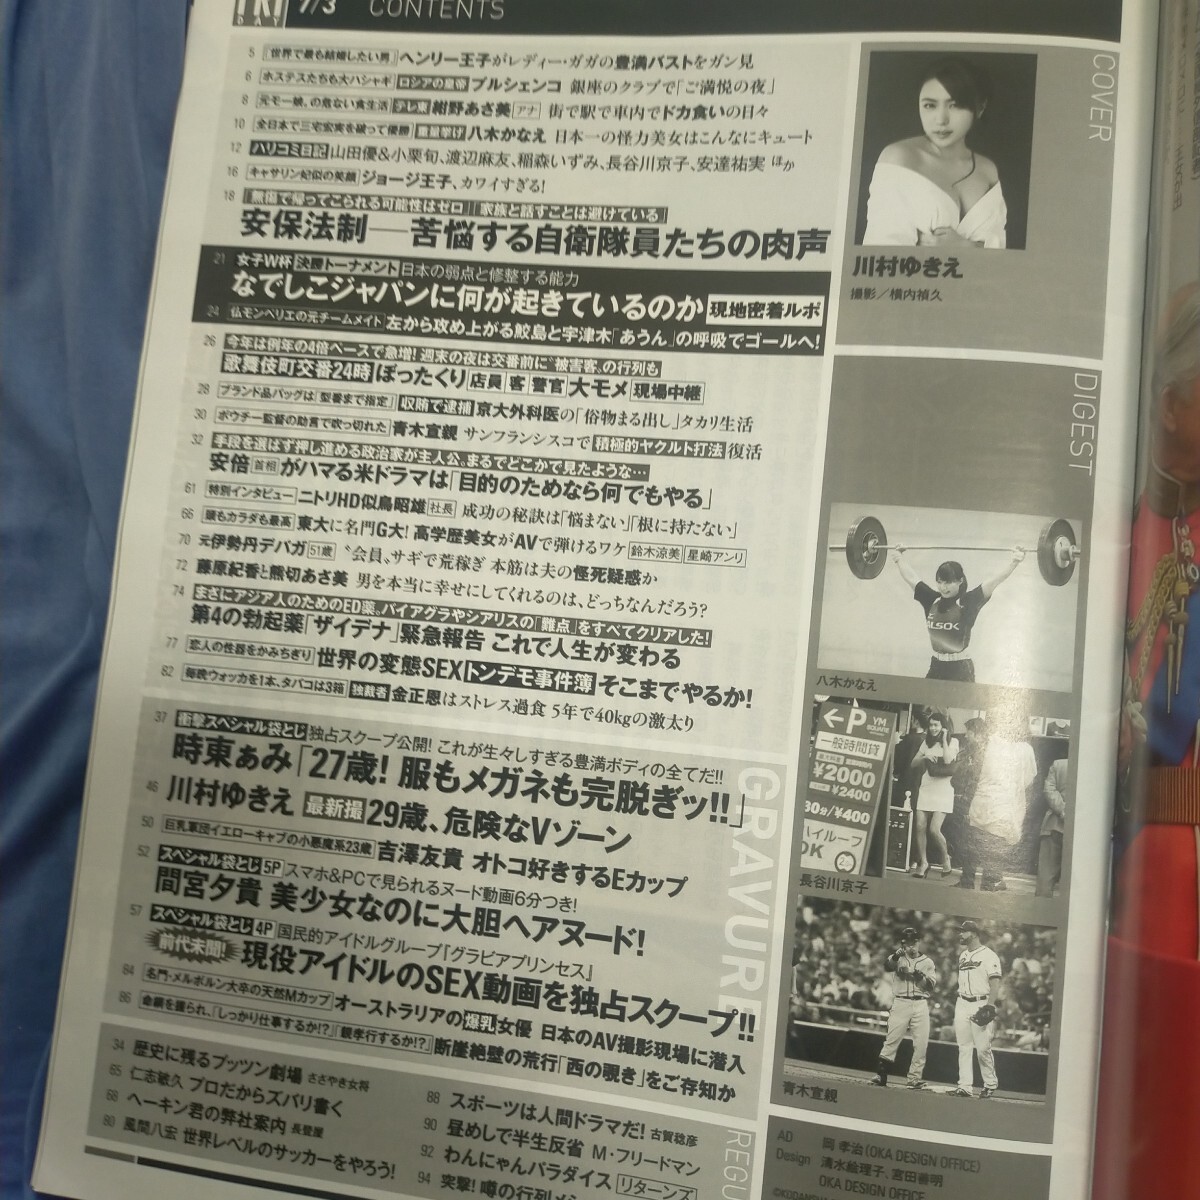 FRIDAY 7/3 CONTENTS
5 「世界で最も結婚したい男」 ヘンリー王子がレディー・ガガの豊満バストをガン見
6 ホステスたちも大ハシャギ ロシアの皇帝 プルシェンコ 銀座のクラブで「ご満悦の夜」
8 元モー娘。の危ない食生活 テレ東 紺野あさ美 アナ 街で駅で車内でドカ食いの日々
10 全日本で三宅宏実を破って優勝 重量挙げ 八木かなえ 日本一の怪力美女はこんなにキュート
12 ハリコミ日記 山田優&小栗旬、渡辺麻友、稲森いずみ、長谷川京子、安達祐実 ほか
16 キャサリン妃似の笑顔 ジョージ王子、カワイすぎる!
18 「無傷で帰ってこられる可能性はゼロ」「家族と話すことは避けている」
安保法制―苦悩する自衛隊員たちの肉声
21 女子W杯 決勝トーナメント 日本の弱点と修整する能力
なでしこジャパンに何が起きているのか 現地密着ルポ
24 仏モンペリエの元チームメイト 左から攻め上がる鮫島と宇津木「あうん」の呼吸でゴールへ!
26 今年は例年の4倍ペースで急増! 週末の夜は交番前に“被害客”の行列も
歌舞伎町交番24時 ぼったくり 店員 客 警官 大モメ 現場中継
28 ブランド品バッグは「型番まで指定」 収賄で逮捕 京大外科医の「俗物まる出し」タカリ生活
30 ボウチー監督の助言で吹っ切れた 青木宣親 サンフランシスコで 積極的ヤクルト打法 復活
32 手段を選ばず押し進める政治家が主人公。まるでどこかで見たような…
安倍 首相 がハマる米ドラマは「目的のためなら何でもやる」
61 特別インタビュー ニトリHD似鳥昭雄 社長 成功の秘訣は「悩まない」「根に持たない」
66 頭もカラダも最高 東大に名門G大! 高学歴美女がAVで弾けるワケ 鈴木涼美 星崎アンリ
70 元伊勢丹デパガ 51歳 “会員”サギで荒稼ぎ 本筋は夫の怪死疑惑か
72 藤原紀香と熊切あさ美 男を本当に幸せにしてくれるのは、どっちなんだろう?
74 まさにアジア人のためのED薬。バイアグラやシアリスの「難点」をすべてクリアした!
第4の勃起薬「ザイデナ」緊急報告 これで人生が変わる
77 恋人の性器をかみちぎり 世界の変態SEX トンデモ事件簿 そこまでやるか!
82 毎晩ウォッカを1本、タバコは3箱 独裁者 金正恩はストレス過食 5年で40kgの激太り
37 衝撃スペシャル袋とじ 独占スクープ公開! これが生々しすぎる豊満ボディの全てだ!!
時東ぁみ「27歳! 服もメガネも完脱ぎッ!!」
46 川村ゆきえ 最新撮 29歳、危険なVゾーン
50 巨乳軍団イエローキャブの小悪魔系23歳 吉澤友貴 オトコ好きするEカップ
52 スペシャル袋とじ 5P スマホ&PCで見られるヌード動画6分つき!
間宮夕貴 美少女なのに大胆ヘアヌード!
57 スペシャル袋とじ 4P 国民的アイドルグループ『グラビアプリンセス』
前代未聞! 現役アイドルのSEX動画を独占スクープ!!
84 名門・メルボルン大卒の天然Mカップ オーストラリアの 爆乳 女優 日本のAV撮影現場に潜入
86 命綱を握られ、「しっかり仕事するか!?」「親孝行するか!?」 断崖絶壁の荒行「西の覗き」をご存知か
GRAVURE
34 歴史に残るブッツン劇場 ささやき女将
65 仁志敏久 プロだからズバリ書く
68 ヘーキン君の弊社案内 長登屋
80 風間八宏 世界レベルのサッカーをやろう!
88 スポーツは人間ドラマだ! 古賀稔彦
90 昼めしで半生反省 M・フリードマン
92 わんにゃんパラダイス リターンズ
94 突撃! 噂の行列
REGU
COVER
川村ゆきえ
撮影/横内禎久
DIGEST
ALSOK
八木かなえ
←P YM SQUARE
一般時間貸
¥2000
¥2400
30分/¥400
ハイルーフ
OK
長谷川京子
青木宣親
AD 岡 孝治(OKA DESIGN OFFICE)
Design 清水絵理子、宮田善明
OKA DESIGN OFFICE